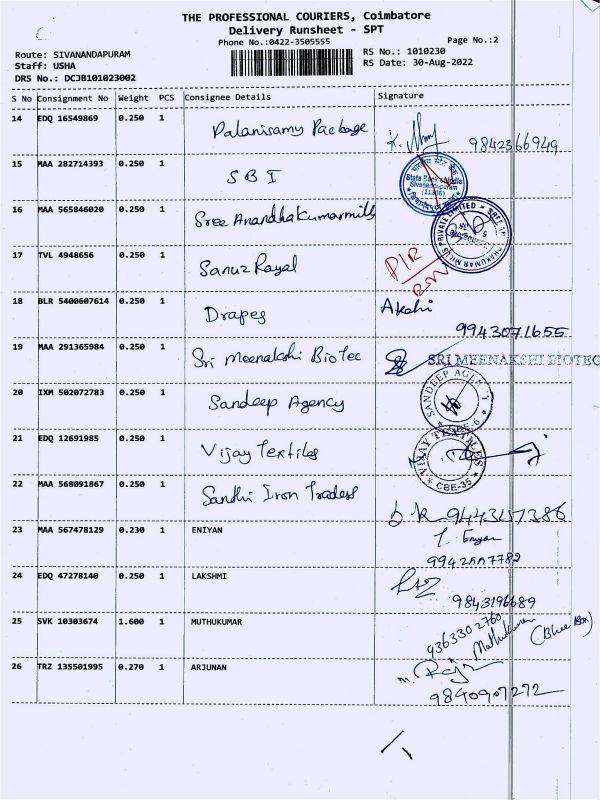 THE PROFESSIONAL COURIERS, Coimbatore
Delivery Runsheet - SPT
Phone No.:0422-3505555
Page No.:2
Route: SIVANANDAPURAM
RS No.: 1010230
Staff: USHA
RS Date: 30-Aug-2022
DRS No.: DCJB101023002
S No Consignment No Weight PCS Consignee Details Signature
14 EDQ 16549869 0.250 1 Palanisamy Package 9842366949
15 MAA 282714393 0.250 1 SBI
State Bank of India
Sivanandapuram
16 MAA 565846020 0.250 1 Sree Anandhakumarmills
17 TVL 4948656 0.250 1 Sanuz Royal
18 BLR 5400607614 0.250 1 Drapes Akshi
9943071655
19 MAA 291365984 0.250 1 Sri Meenakshi Biotec SRI MEENAKSHI BIOTEC
20 IXM 502072783 0.250 1 Sandeep Agency
SANDEEP AGENCY
21 EDQ 12691985 0.250 1 Vijay Textiles
VIJAY TEXTILES
CBE-35
22 MAA 568091867 0.250 1 Sandhi Iron Traders
23 MAA 567478129 0.230 1 ENIYAN
24 EDQ 47278140 0.250 1 LAKSHMI
9843196689
25 SVK 10303674 1.600 1 MUTHUKUMAR 9363302760
Muthukumar
26 TRZ 135501995 0.270 1 ARJUNAN
9840907272